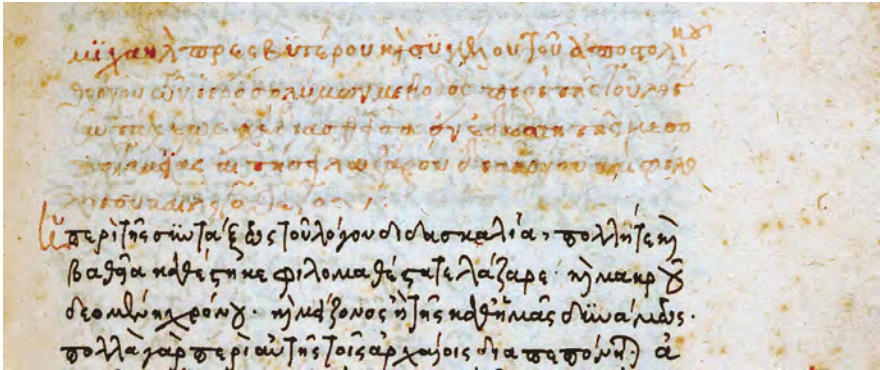 μϊχαὴλ πρεσβϋτέρου καὶ σϋγκέλλου τοῦ ἀποστολικοῦ
θρόνου τῶν ἱεροσολύμων μέθοδος περὶ τῆς τοῦ λόγου
συντάξεως σχεδιασθεῖσα ἐν ἐδέσῃ τῆς μεσο
ποταμίας αἰτήσει λαζάρου διακόνου καὶ φιλο
Ἡ περὶ τῆς σϋντάξεως τοῦ λόγου διδασκαλία, πολλή τε καὶ
βαθεῖα καθέστηκε φιλομαθέστατε λάζαρε· καὶ μακροῦ
δεομένη χρόνου· καὶ μείζονος ἢ τῆς καθ' ἡμᾶς δϋνάμεως·
πολλὰ γὰρ περὶ αὐτῆς τοῖς ἀρχαίοις διαπεπόνηται· ἀ